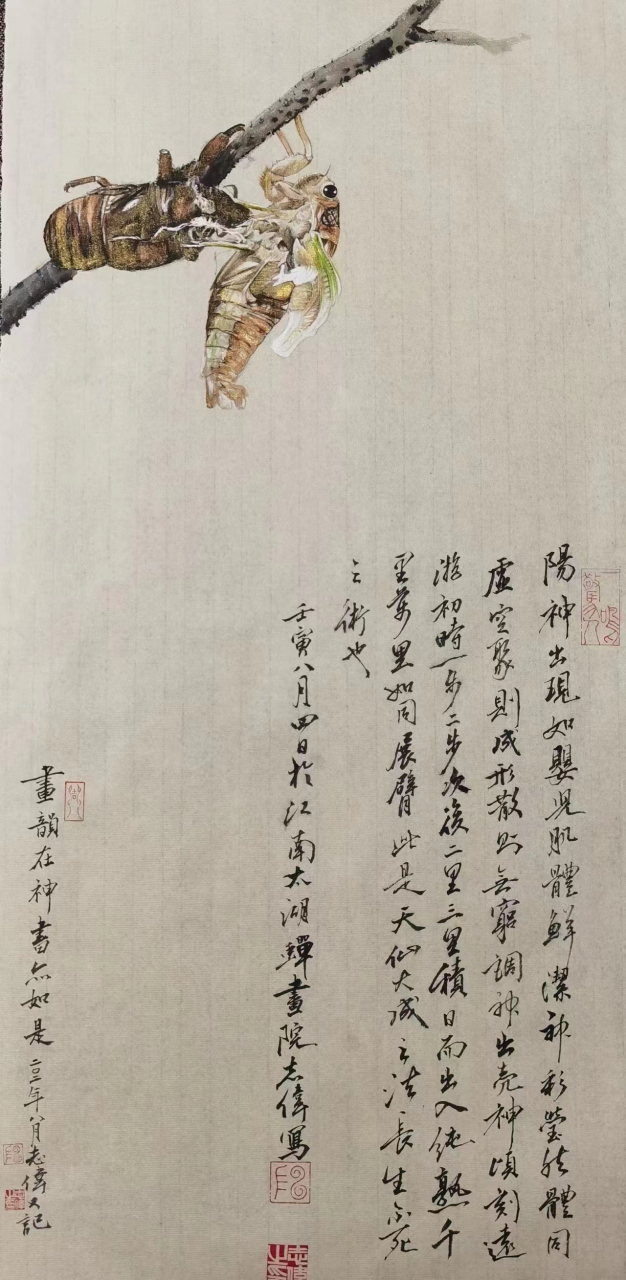 陽神出現如嬰兒肌體鮮潔神彩瑩然體同
虛空聚則成形散則無窮調神出壳神頃刻遠
游初時一步二步次後二里三里積日而出入純熟千
里萬里如同展臂此是天仙大成之法長生不死
之術也
壬寅八月四日於江南太湖蟬畫院志偉寫
畫韻在神書亦如是二〇二二年八月志偉又記
一鳴驚人